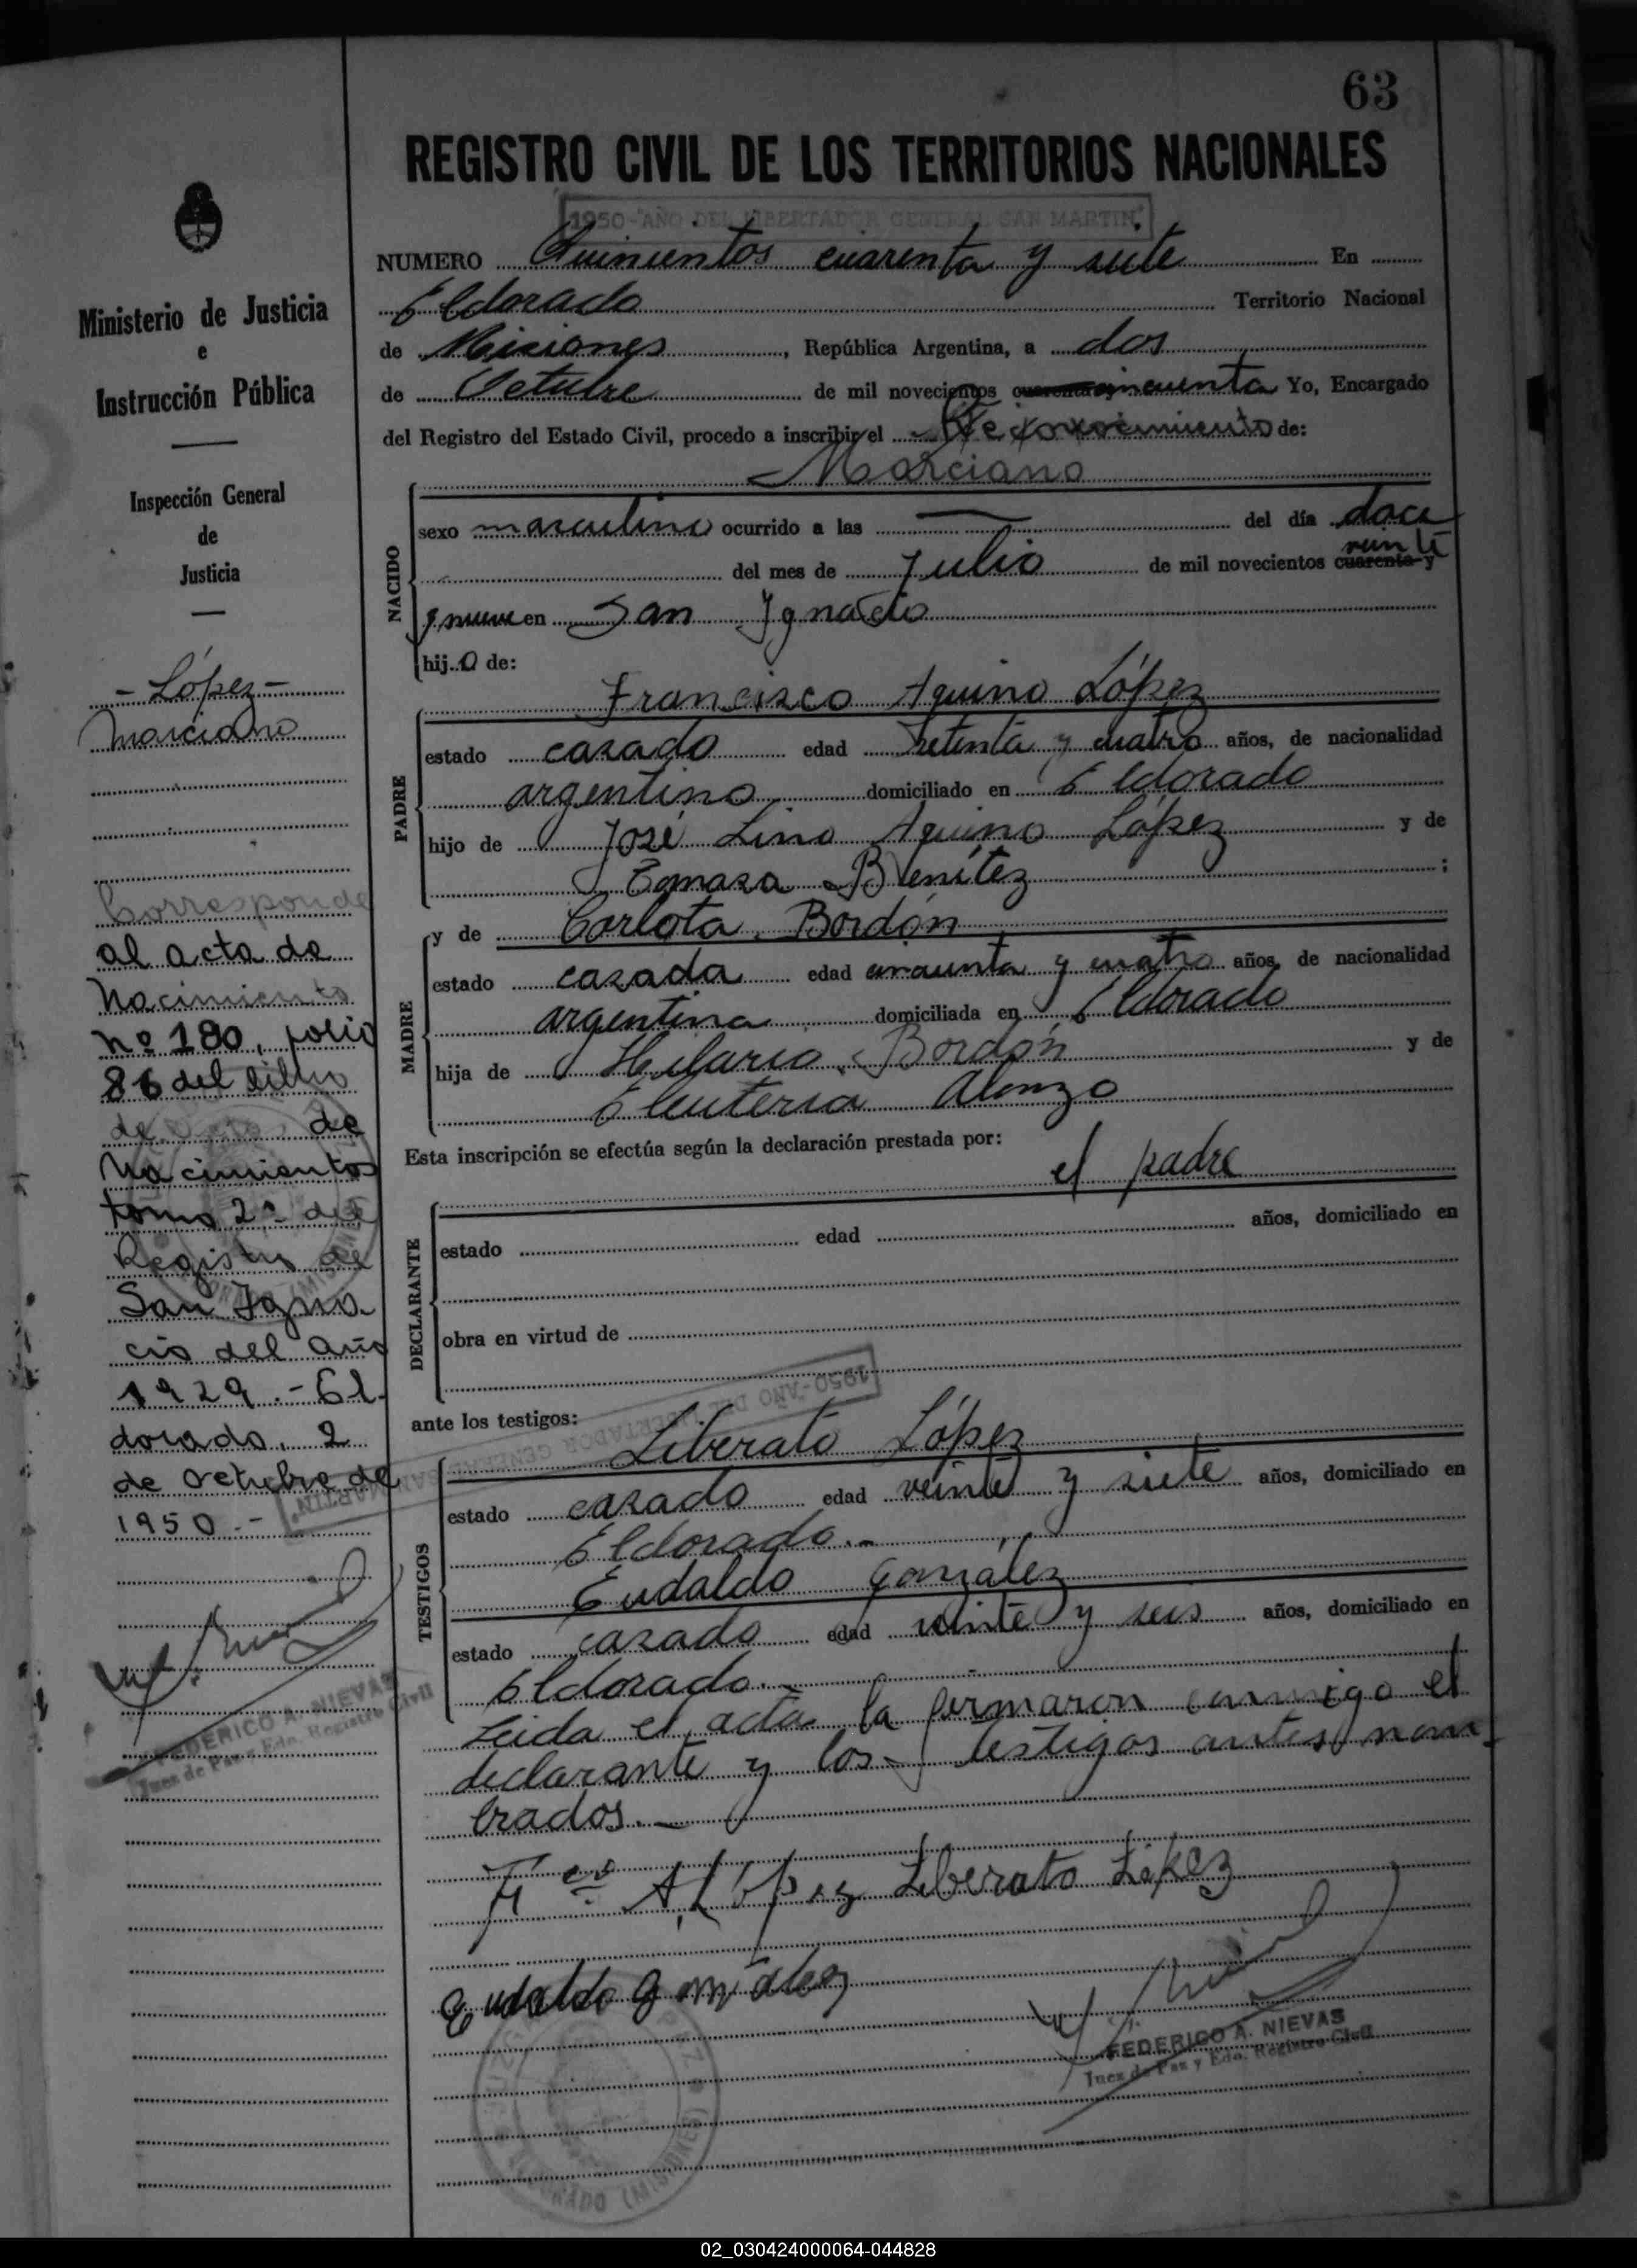 63
REGISTRO CIVIL DE LOS TERRITORIOS NACIONALES
1950-"AÑO DEL LIBERTADOR GENERAL SAN MARTIN"
NUMERO Quinientos cuarenta y siete En
Eldorado Territorio Nacional
de Misiones, República Argentina, a dos
de Octubre de mil novecientos cuarenta y cincuenta Yo, Encargado
del Registro del Estado Civil, procedo a inscribir el Reconocimiento de:
Marciano
NACIDO
sexo masculino ocurrido a las — del día doce
del mes de Julio de mil novecientos cuarenta y veinti
y nueve en San Ignacio
hij o de:
Francisco Aquino López
PADRE
estado casado edad setenta y cuatro años, de nacionalidad
argentino domiciliado en Eldorado
hijo de José Lino Aquino López y de
Tomasa Benítez ;
y de Carlota Bordón
MADRE
estado casada edad cincuenta y cuatro años, de nacionalidad
argentina domiciliada en Eldorado
hija de Hilario Bordón y de
Eleuteria Alonzo
Esta inscripción se efectúa según la declaración prestada por:
el padre
DECLARANTE
estado edad años, domiciliado en
obra en virtud de
1950-AÑO DEL LIBERTADOR GENERAL SAN MARTIN"
ante los testigos:
Liberato López
TESTIGOS
estado casado edad veinte y siete años, domiciliado en
Eldorado.-
Eudaldo González
estado casado edad veinte y seis años, domiciliado en
Eldorado.-
Leida el acta la firmaron conmigo el
declarante y los testigos antes nom-
brados.-
Fco A. López Liberato López
Eudaldo Gonzalez
FEDERICO A. NIEVAS
Juez de Paz y Edo. Registro Civil
ELDORADO (MISIONES)
Ministerio de Justicia
e
Instrucción Pública
Inspección General
de
Justicia
- López -
Marciano
Corresponde
al acta de
Nacimiento
nº 180, folio
86 del libro
de actas de
Nacimientos
tomo 2º del
Registro de
San Igna-
cio del año
1929.- El-
dorado, 2
de octubre de
1950.-
FEDERICO A. NIEVAS
Juez de Paz y Edo. Registro Civil
02_030424000064-044828